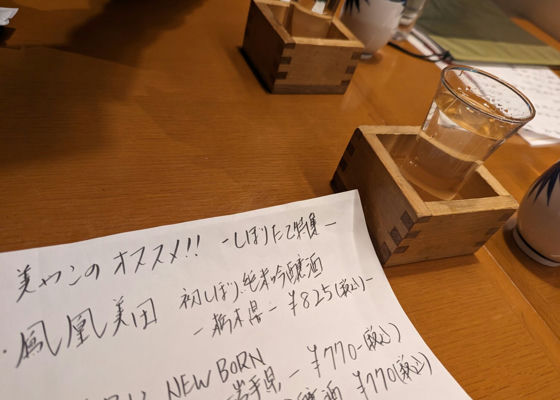 美やこのオススメ!! -しぼりたて特集-
・鳳凰美田 初しぼり純米吟醸酒
-栃木県- ¥825(税込)-
NEW BORN
岩手県 - ¥770-(税込)
酒 ¥770(税込)